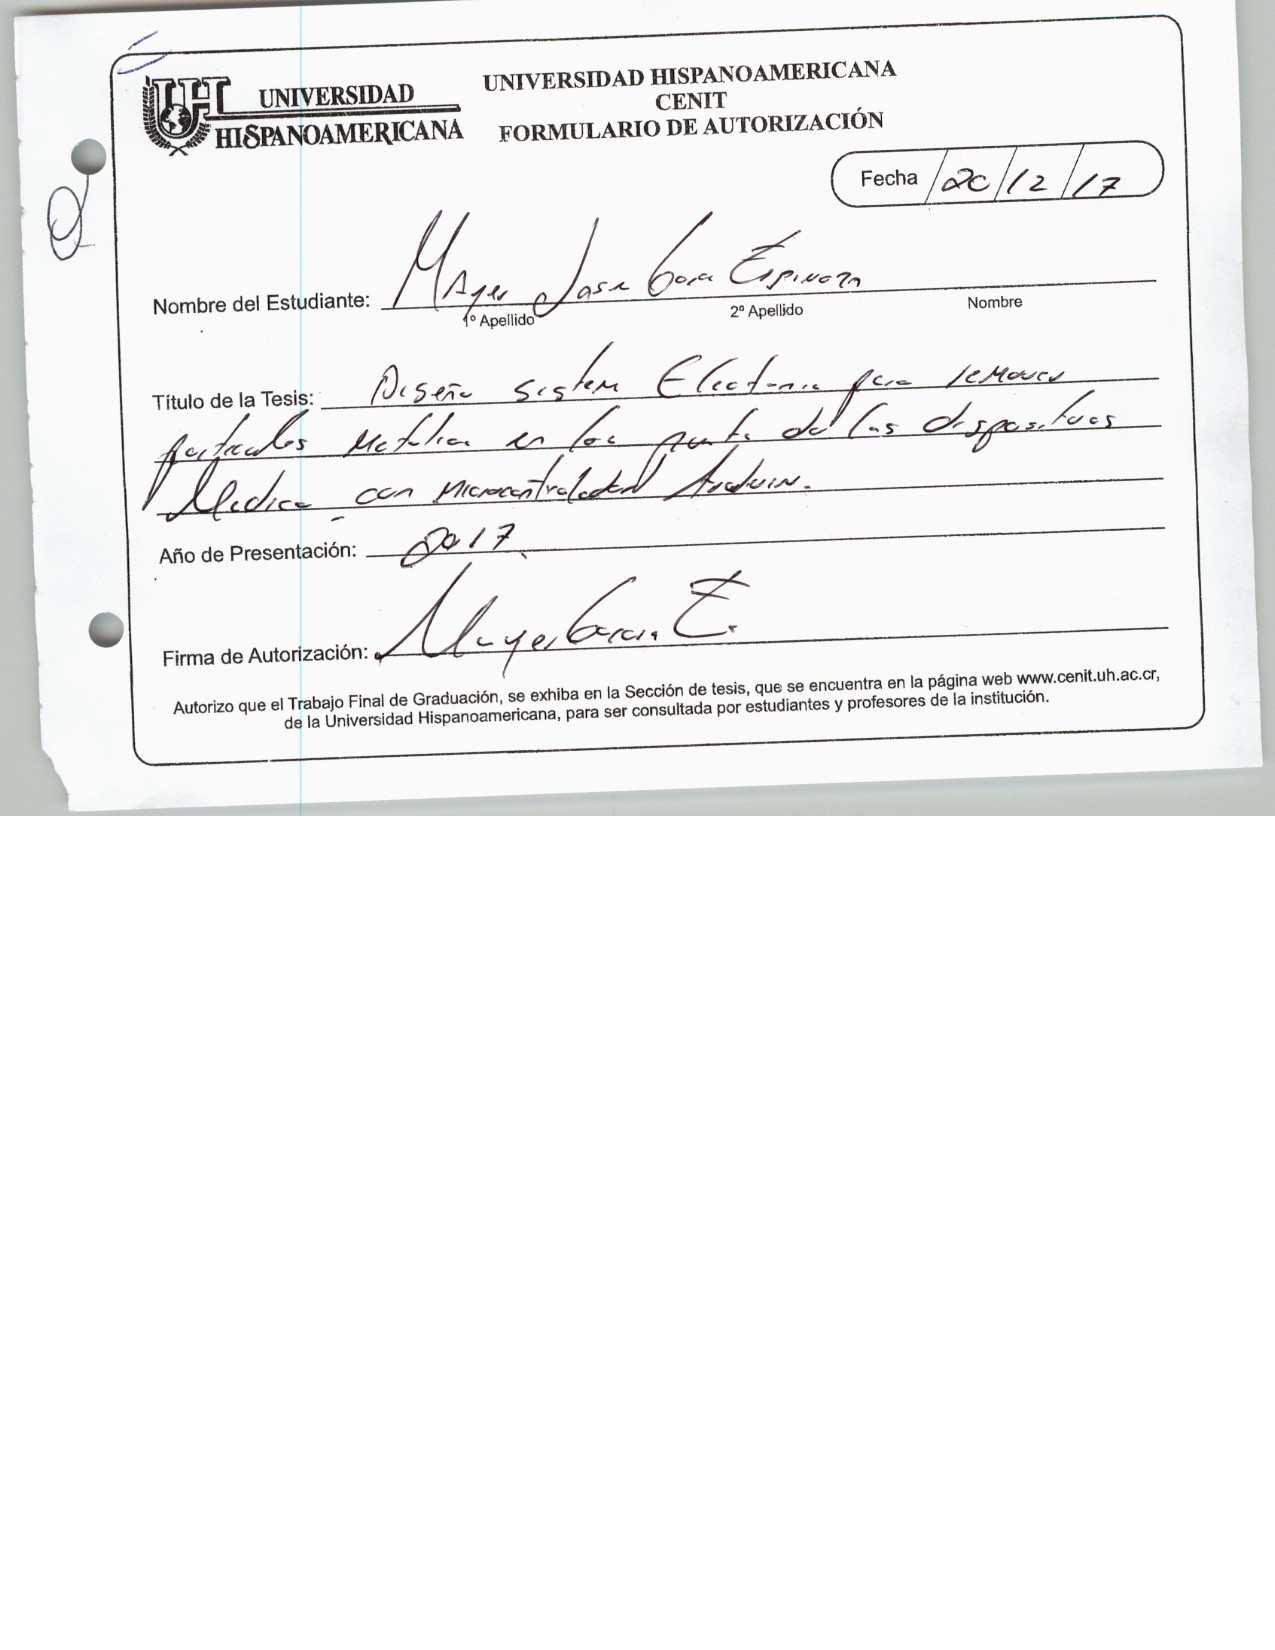 UNIVERSIDAD HISPANOAMERICANA
UNIVERSIDAD HISPANOAMERICANA
CENIT
FORMULARIO DE AUTORIZACIÓN
Fecha 20/12/17
Nombre del Estudiante: Mayer Jose Espinoza
1º Apellido 2º Apellido Nombre
Título de la Tesis: Diseño sistem para remover
en de los dispositivos
Medico con Microcontrolador
Año de Presentación: 2017
Firma de Autorización: Mayer Garcia E.
Autorizo que el Trabajo Final de Graduación, se exhiba en la Sección de tesis, que se encuentra en la página web www.cenit.uh.ac.cr,
de la Universidad Hispanoamericana, para ser consultada por estudiantes y profesores de la institución.